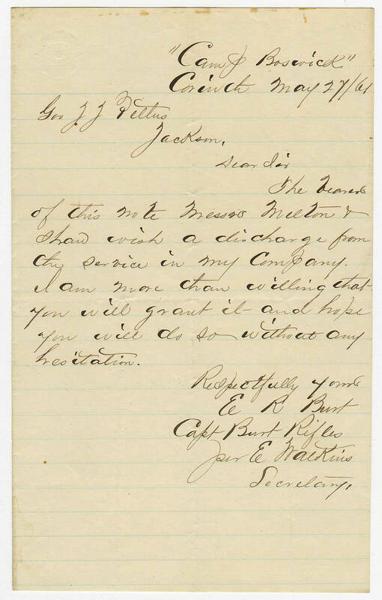 "Camp Boswick"
Corinth May 27/61
Gov J J Pettus
Jackson,
Dear Sir
The bearers
of this note Messrs Melton &
Shaw wish a discharge from
the service in my Company.
I am more than willing that
you will grant it and hope
you will do so without any
hesitation.
Respectfully yours
E R Burt
Capt Burt Rifles
per E Watkins
Secretary,